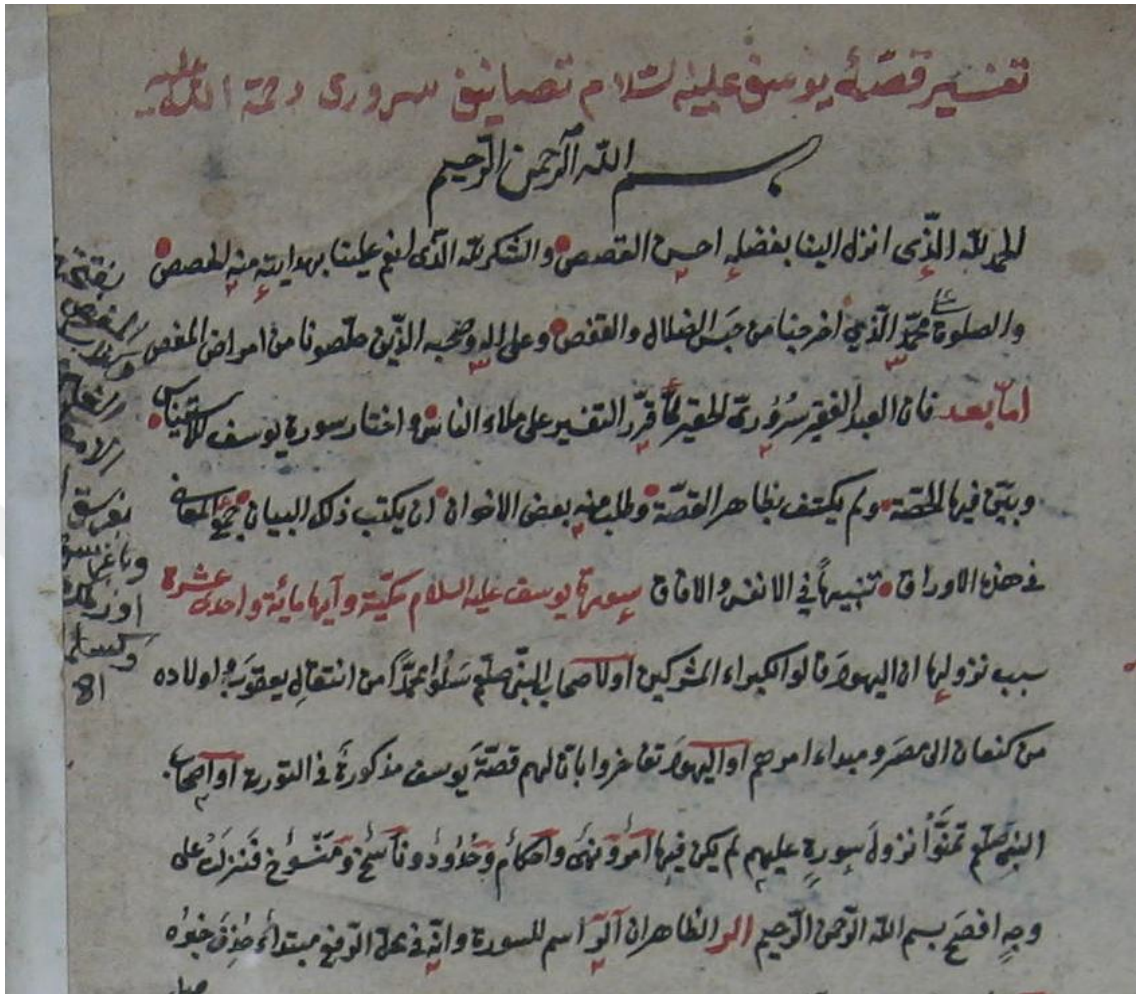 تفسير قصّهٔ يوسف عليه السّلام تصانيف سرورى رحمة الله عليه
بسم الله الرّحمن الرّحيم
الحمد لله الّذى انزل الينا بفضله احسن القصص والشكر لله الّذى انعم علينا بهدايته منه الحصص
والصلوة على محمّد الّذي اخرجنا من حبس الضلال والقفص وعلى اله وصحبه الّذين خلصونا من امراض المغص
امّا بعد فان العبد الفقير سُرُورىّ الحقير لمّا قرّر التفسير على ملاء الناس واختار سورة يوسف للاستيناس
وبيّن فيها الحصّة ولم يكتف بظاهر القصّة وطلب منه بعض الاخوان ان يكتب ذلك البيان مع المعانى
فى هذه الاوراق تنبيهاً في الانفس والافاق سورة يوسف عليه السلام مكّيّة وآيها مائة واحدى عشرة
سبب نزولها ان اليهود قالوا لكبراء المشركين او لاصحاب النبى صلعم سَلُوا محمّداً من انتقال يعقوب واولاده
من كنعان الى مصر ومبداء امرهم او اليهود تفاخروا بانّ لهم قصّة يوسف مذكورة فى التورية او اصحاب
النبى صلعم تمنَّوْا نزول سورةٍ عليهم لم يكن فيها امرٌ ونهى واحكامٌ وحُدُودٌ وناسخٌ ومَنْسُوخٌ فنزلت على
وجهٍ افصح بسم الله الرّحمن الرّحيم الر الظاهر ان آلر اسم للسورة وانّه فى محلّ الرّفع مبتداء حُذِفَ خبرُه